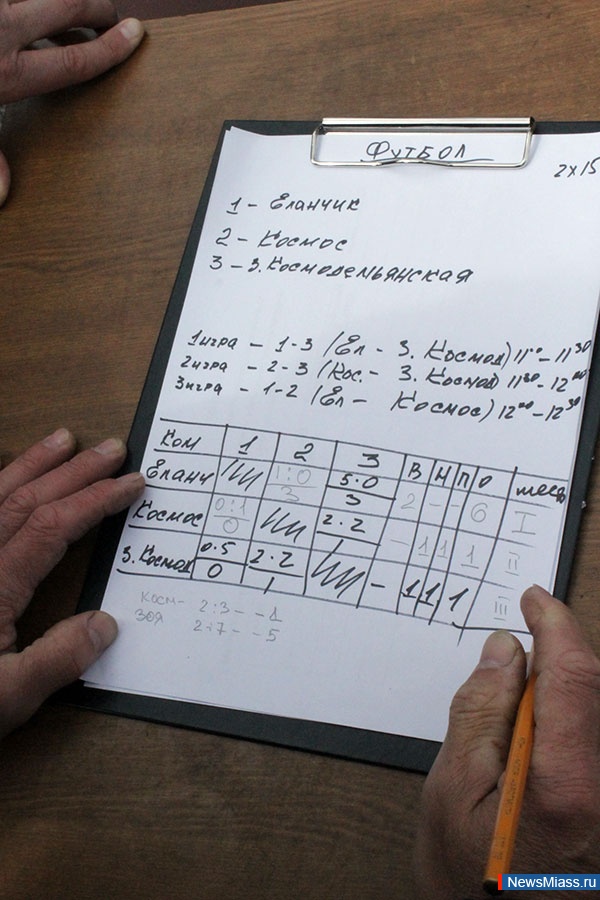 Футбол
2 х 15
1 - Еланчик
2 - Космос
3 - З. Космодемьянская
1 игра - 1-3 (Ел - З. Космод) 11⁰⁰-11³⁰
2 игра - 2-3 (Кос. - З. Космод) 11³⁰-12⁰⁰
3 игра - 1-2 (Ел - Космос) 12⁰⁰-12³⁰
Ком 1 2 3 В Н П О место
Еланч 1:0 3 5:0 3 2 - - 6 I
Космос 0:1 0 2:2 1 - 1 1 1 II
З. Космод 0:5 0 2:2 1 - 1 1 1 III
Косм - 2:3 - -1
Зоя 2:7 - -5
NewsMiass.ru